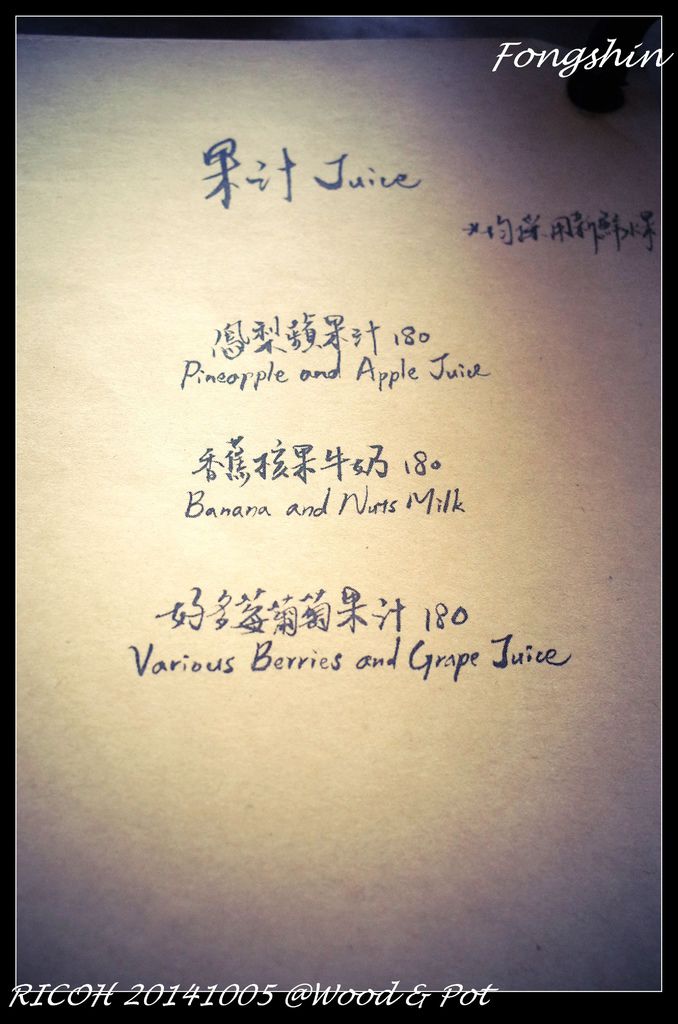 Fongshin
果汁 Juice
*均採用新鮮水果
鳳梨蘋果汁 180
Pineapple and Apple Juice
香蕉核果牛奶 180
Banana and Nuts Milk
好多莓葡萄果汁 180
Various Berries and Grape Juice
RICOH 20141005 @Wood & Pot